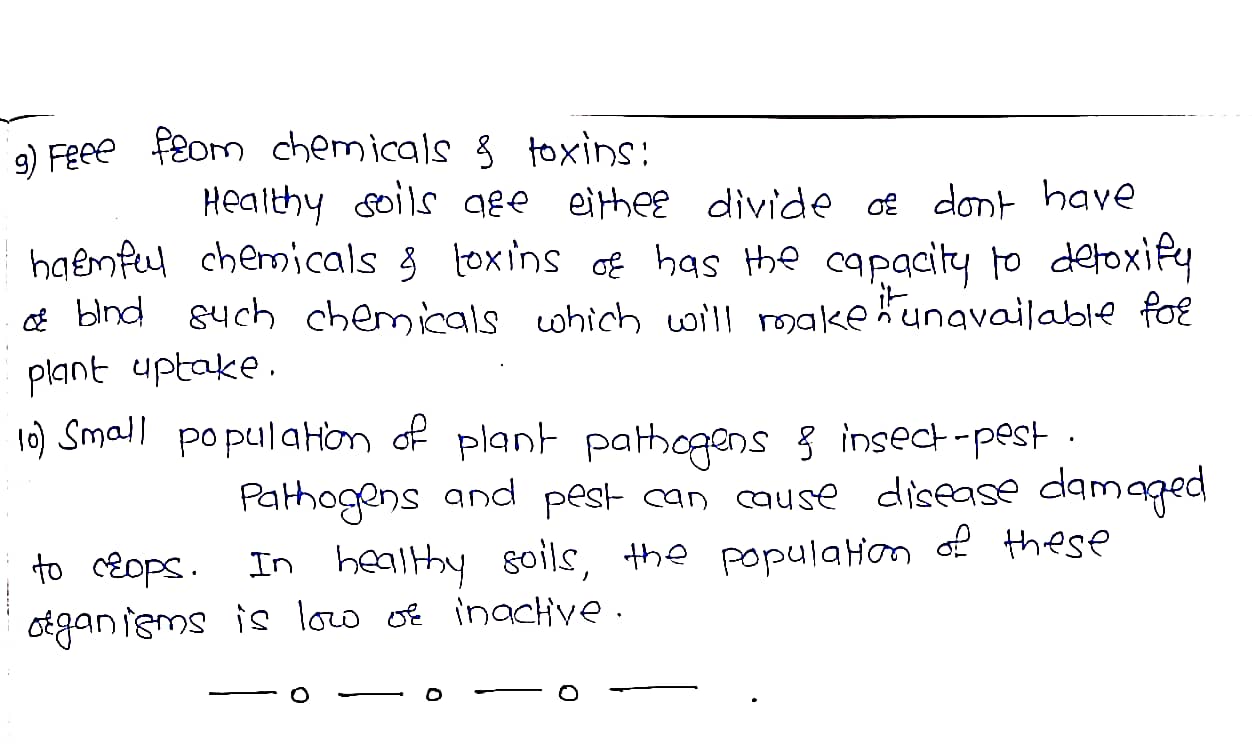 9) Free from chemicals & toxins:
Healthy soils are either divide or dont have
harmful chemicals & toxins or has the capacity to detoxify
or bind such chemicals which will make it unavailable for
plant uptake.
10) Small population of plant pathogens & insect-pest.
Pathogens and pest can cause disease damaged
to crops. In healthy soils, the population of these
organisms is low or inactive.